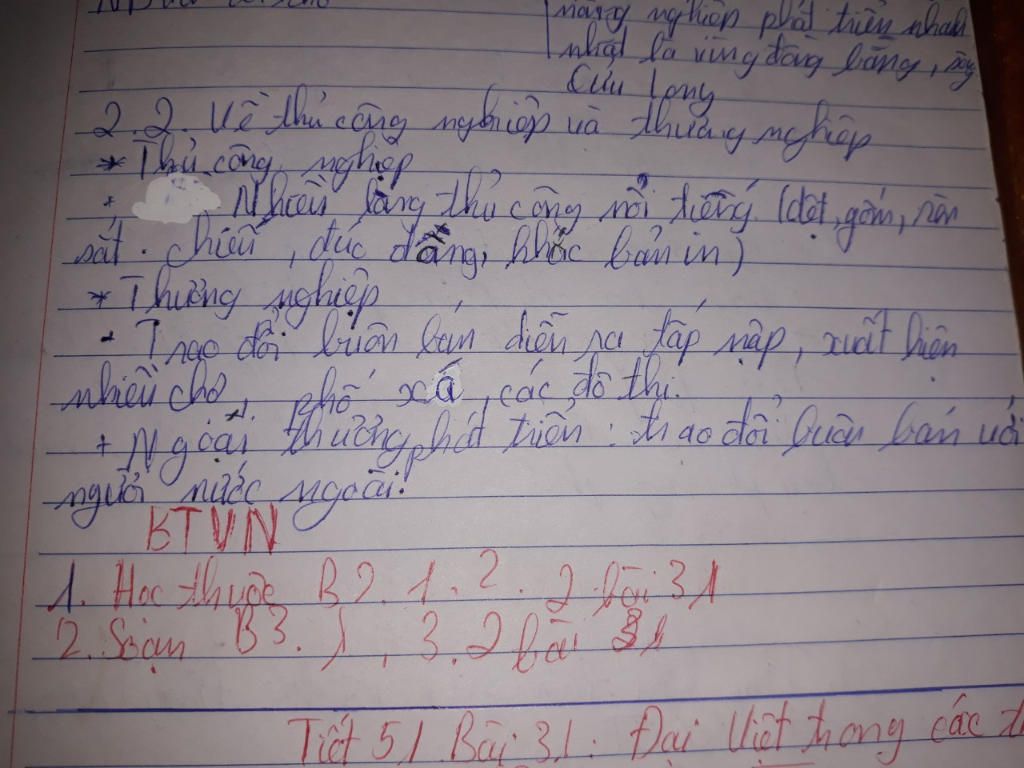 năng nghiệp phát triển nhanh
nhất là vùng đồng bằng, sông
Cửu Long
2.2. Về thủ công nghiệp và thương nghiệp
* Thủ công nghiệp
+ Nhiều làng thủ công nổi tiếng (dệt, gốm, rèn
sắt. chiếu, đúc đồng, khắc bản in)
* Thương nghiệp
+ Trao đổi buôn bán diễn ra tấp nập, xuất hiện
nhiều chợ, phố xá, các đô thị.
+ Ngoại thương phát triển: trao đổi buôn bán với
người nước ngoài.
BTVN
1. Học thuộc B2.1.2.2 bài 31
2. Soạn B3.1, 3.2 bài 31
Tiết 51 Bài 31. Đại Việt trong các